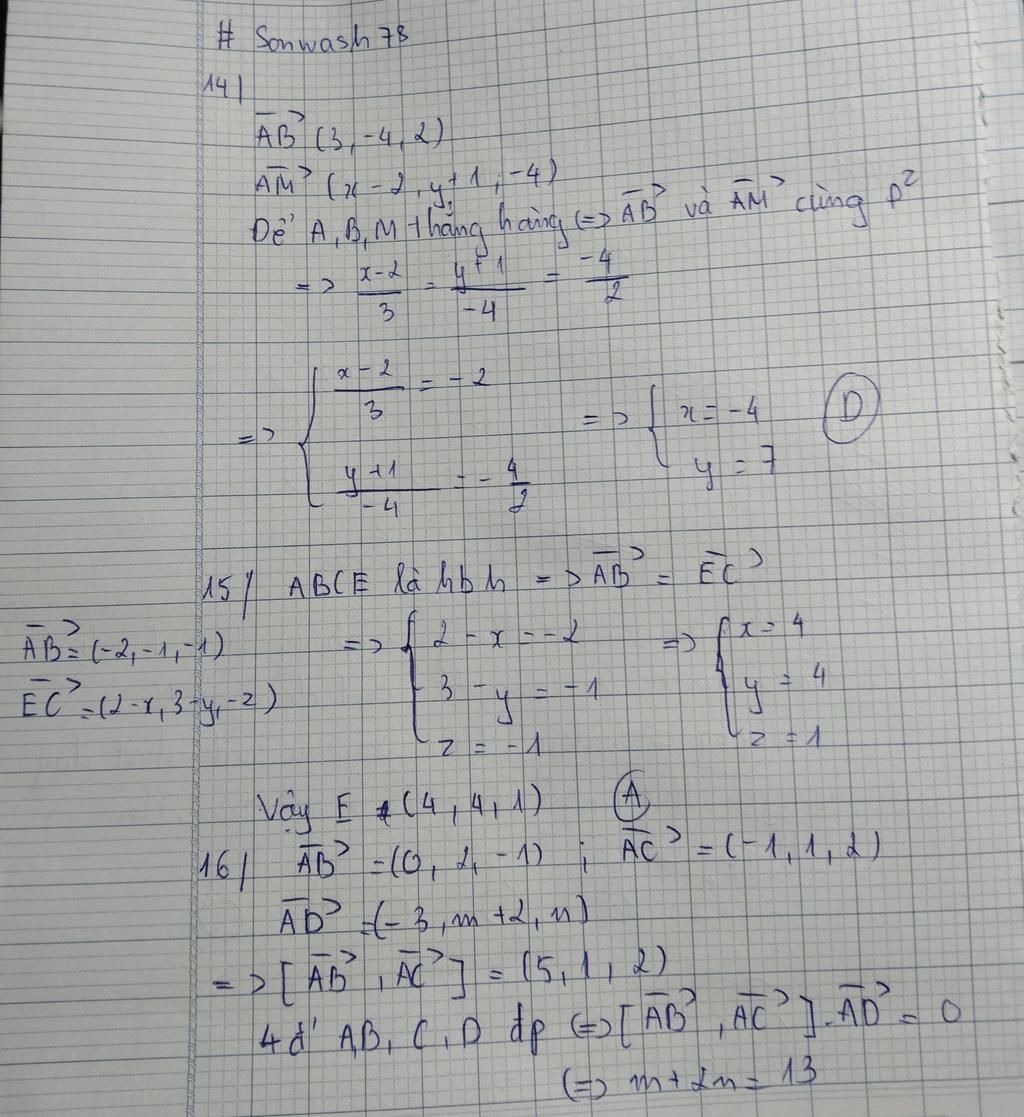 # Sonwash78
14/
AB→ (3, -4, 2)
AM→ (x-2, y+1, -4)
Để A, B, M thẳng hàng <=> AB→ và AM→ cùng p²
=> (x-2)/3 = (y+1)/-4 = -4/2
=> { (x-2)/3 = -2 => { x = -4 (D)
(y+1)/-4 = -4/2 y = 7
15/ ABCE là hbh => AB→ = EC→
AB→ = (-2, -1, -1) => { 2 - x = -2 => { x = 4
EC→ = (2-x, 3-y, -z) 3 - y = -1 y = 4
z = -1 z = 1
Vậy E (4, 4, 1) (A)
16/ AB→ = (0, 2, -1) ; AC→ = (-1, 1, 2)
AD→ = (-3, m+2, n)
=> [AB→, AC→] = (5, 1, 2)
4 đ' AB, C, D đp <=> [AB→, AC→].AD→ = 0
<=> m + 2n = 13